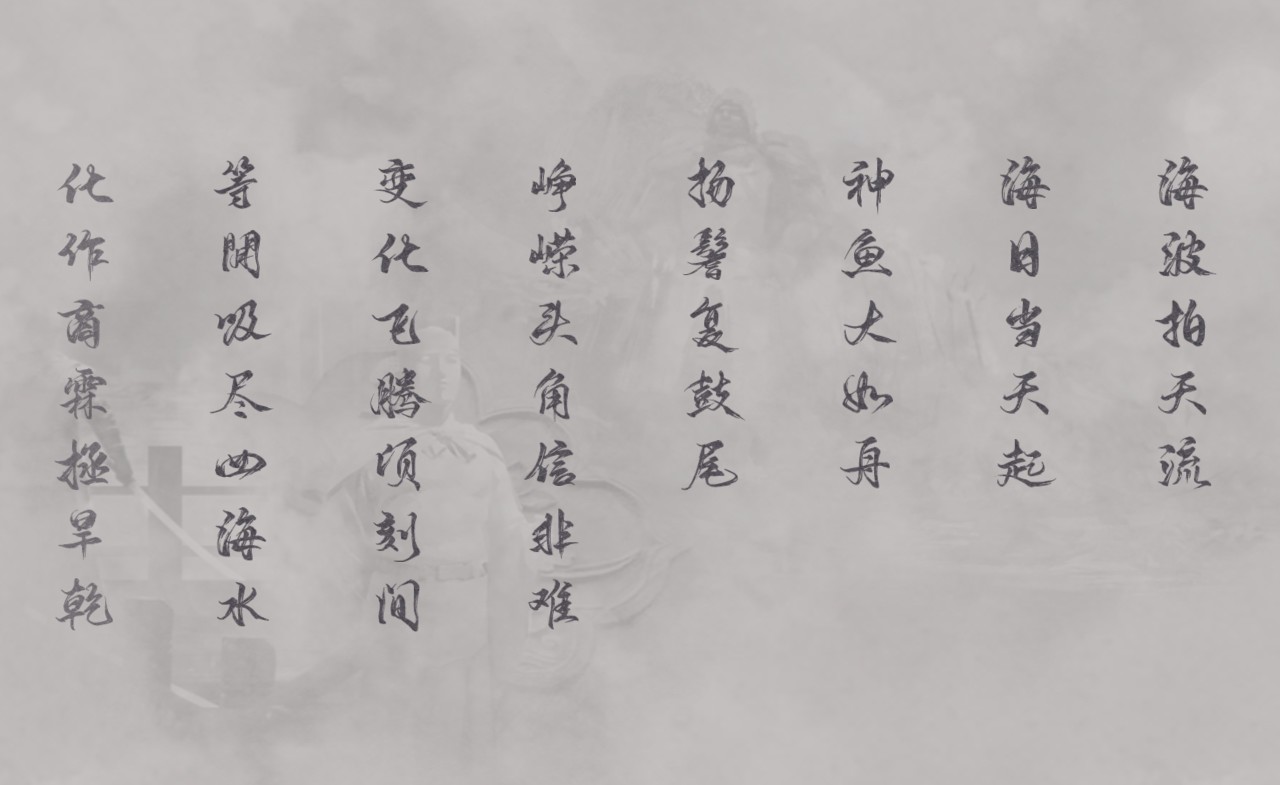 海波拍天流
海日当天起
神鱼大如舟
扬鬐复鼓尾
峥嵘头角信非难
变化飞腾顷刻间
等闲吸尽四海水
化作商霖拯旱乾